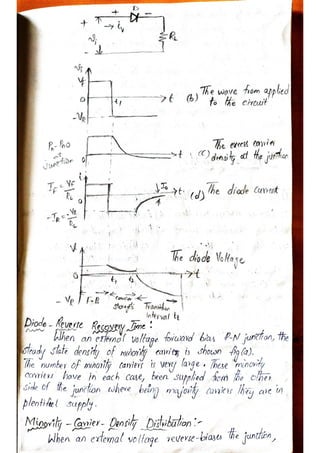 + → + D -
+ iv
vi RL
-
vi
VF
0 t1 → t (b) The wave from applied
to the circuit
-VR
Pn-Pno
at
junction
0 → t (c) The excess carrier
density at the junction
i
IF = VF/RL
0 Io → t (d) The diode current
-IR = -VR/RL
V The diode Voltage
0 t1 t2 → t
-VR F-B
storage Transition
interval tt
Diode - Reverse Recovery Time :
When an external voltage forward bias P-N junction, the
steady state density of minority carriers is shown fig(a).
The number of minority carriers is very large. These minority
carriers have in each case, been supplied from the other
side of the junction where being majority carriers they are in
plentiful supply.
Minority - Carrier - Density Distribution :-
When an external voltage reverse-biases the junction,